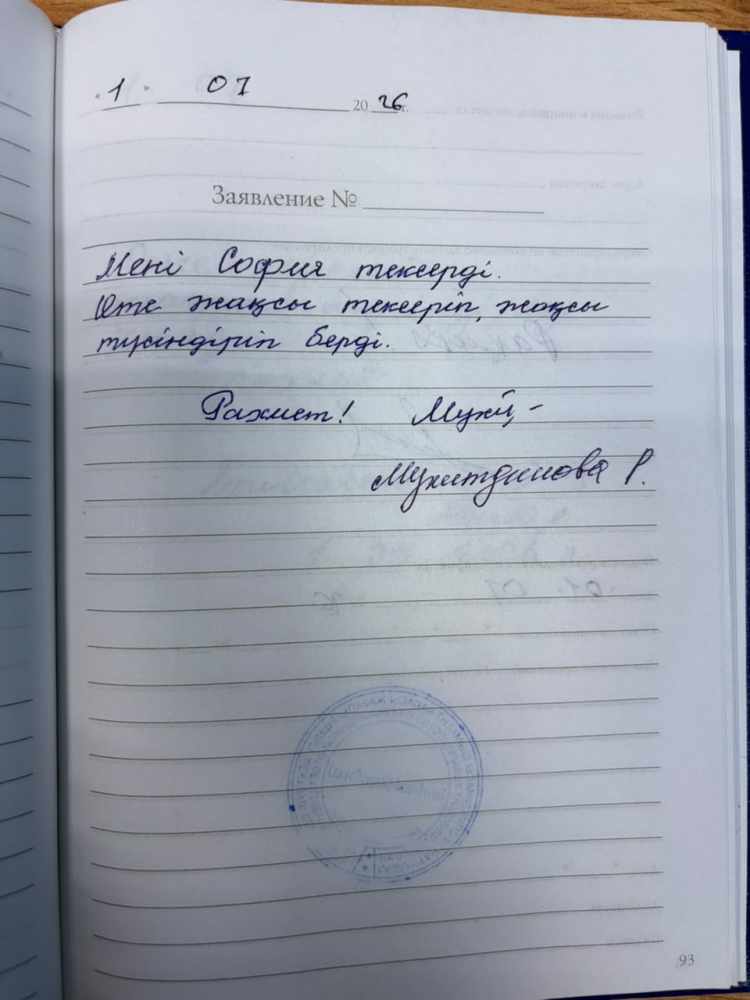 «1» 07 2026 г.
Заявление №
Мені София тексерді.
Өте жақсы тексеріп, жақсы
түсіндіріп берді.
Рахмет!
Мухитдинова Р.
93